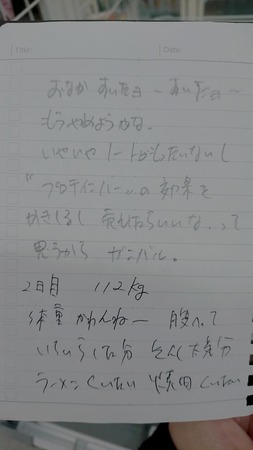 Title:
Date:
おなかすいたヨ〜 すいたヨ〜
もうやめようかな。
いやいやノートがもったいないし
"プロテインバー"の効果を
かきしるし 売れたらいいな。って
思うから ガンバル。
2日目 112kg
体重 かわんねー 腹へって
いらいらして
ラーメンくいたい 焼肉くいたい